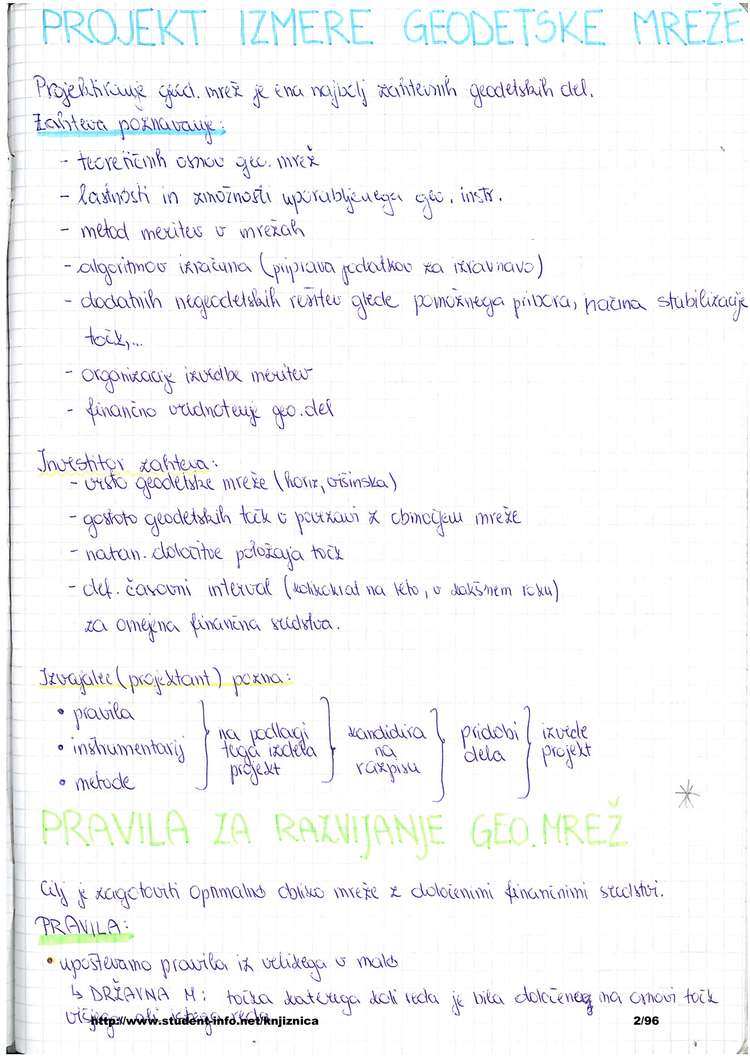 PROJEKT IZMERE GEODETSKE MREŽE
Projektiranje geod. mrež je ena najbolj zahtevnih geodetskih del.
Zahteva poznavanje:
- teoretičnih osnov geo. mrež
- lastnosti in zmožnosti uporabljenega geo. instr.
- metod meritev v mrežah
- algoritmov izračuna (priprava podatkov za izravnavo)
- dodatnih negeodetskih rešitev glede pomožnega pribora, načina stabilizacije
točk,...
- organizacije izvedbe meritev
- finančno vrednotenje geo. del
Investitor zahteva:
- vrsto geodetske mreže (horiz, višinska)
- gostoto geodetskih točk v povezavi z območjem mreže
- natan. določitve položaja točk
- def. časovni interval (kolikokrat na leto, v kakšnem roku)
za omejena finančna sredstva.
Izvajalec (projektant) pozna:
• pravila
• inštrumentarij
• metode
na podlagi
tega izdela
projekt
kandidira
na
razpisu
pridobi
dela
izvede
projekt
PRAVILA ZA RAZVIJANJE GEO. MREŽ
Cilj je zagotoviti optimalno obliko mreže z določenimi finančnimi sredstvi.
PRAVILA:
• upoštevamo pravila iz velikega v malo
↳ DRŽAVNA M: točka katerega koli reda je bila določena na osnovi točk
višjega ali istega reda
http://www.student-info.net/knjiznica
2/96